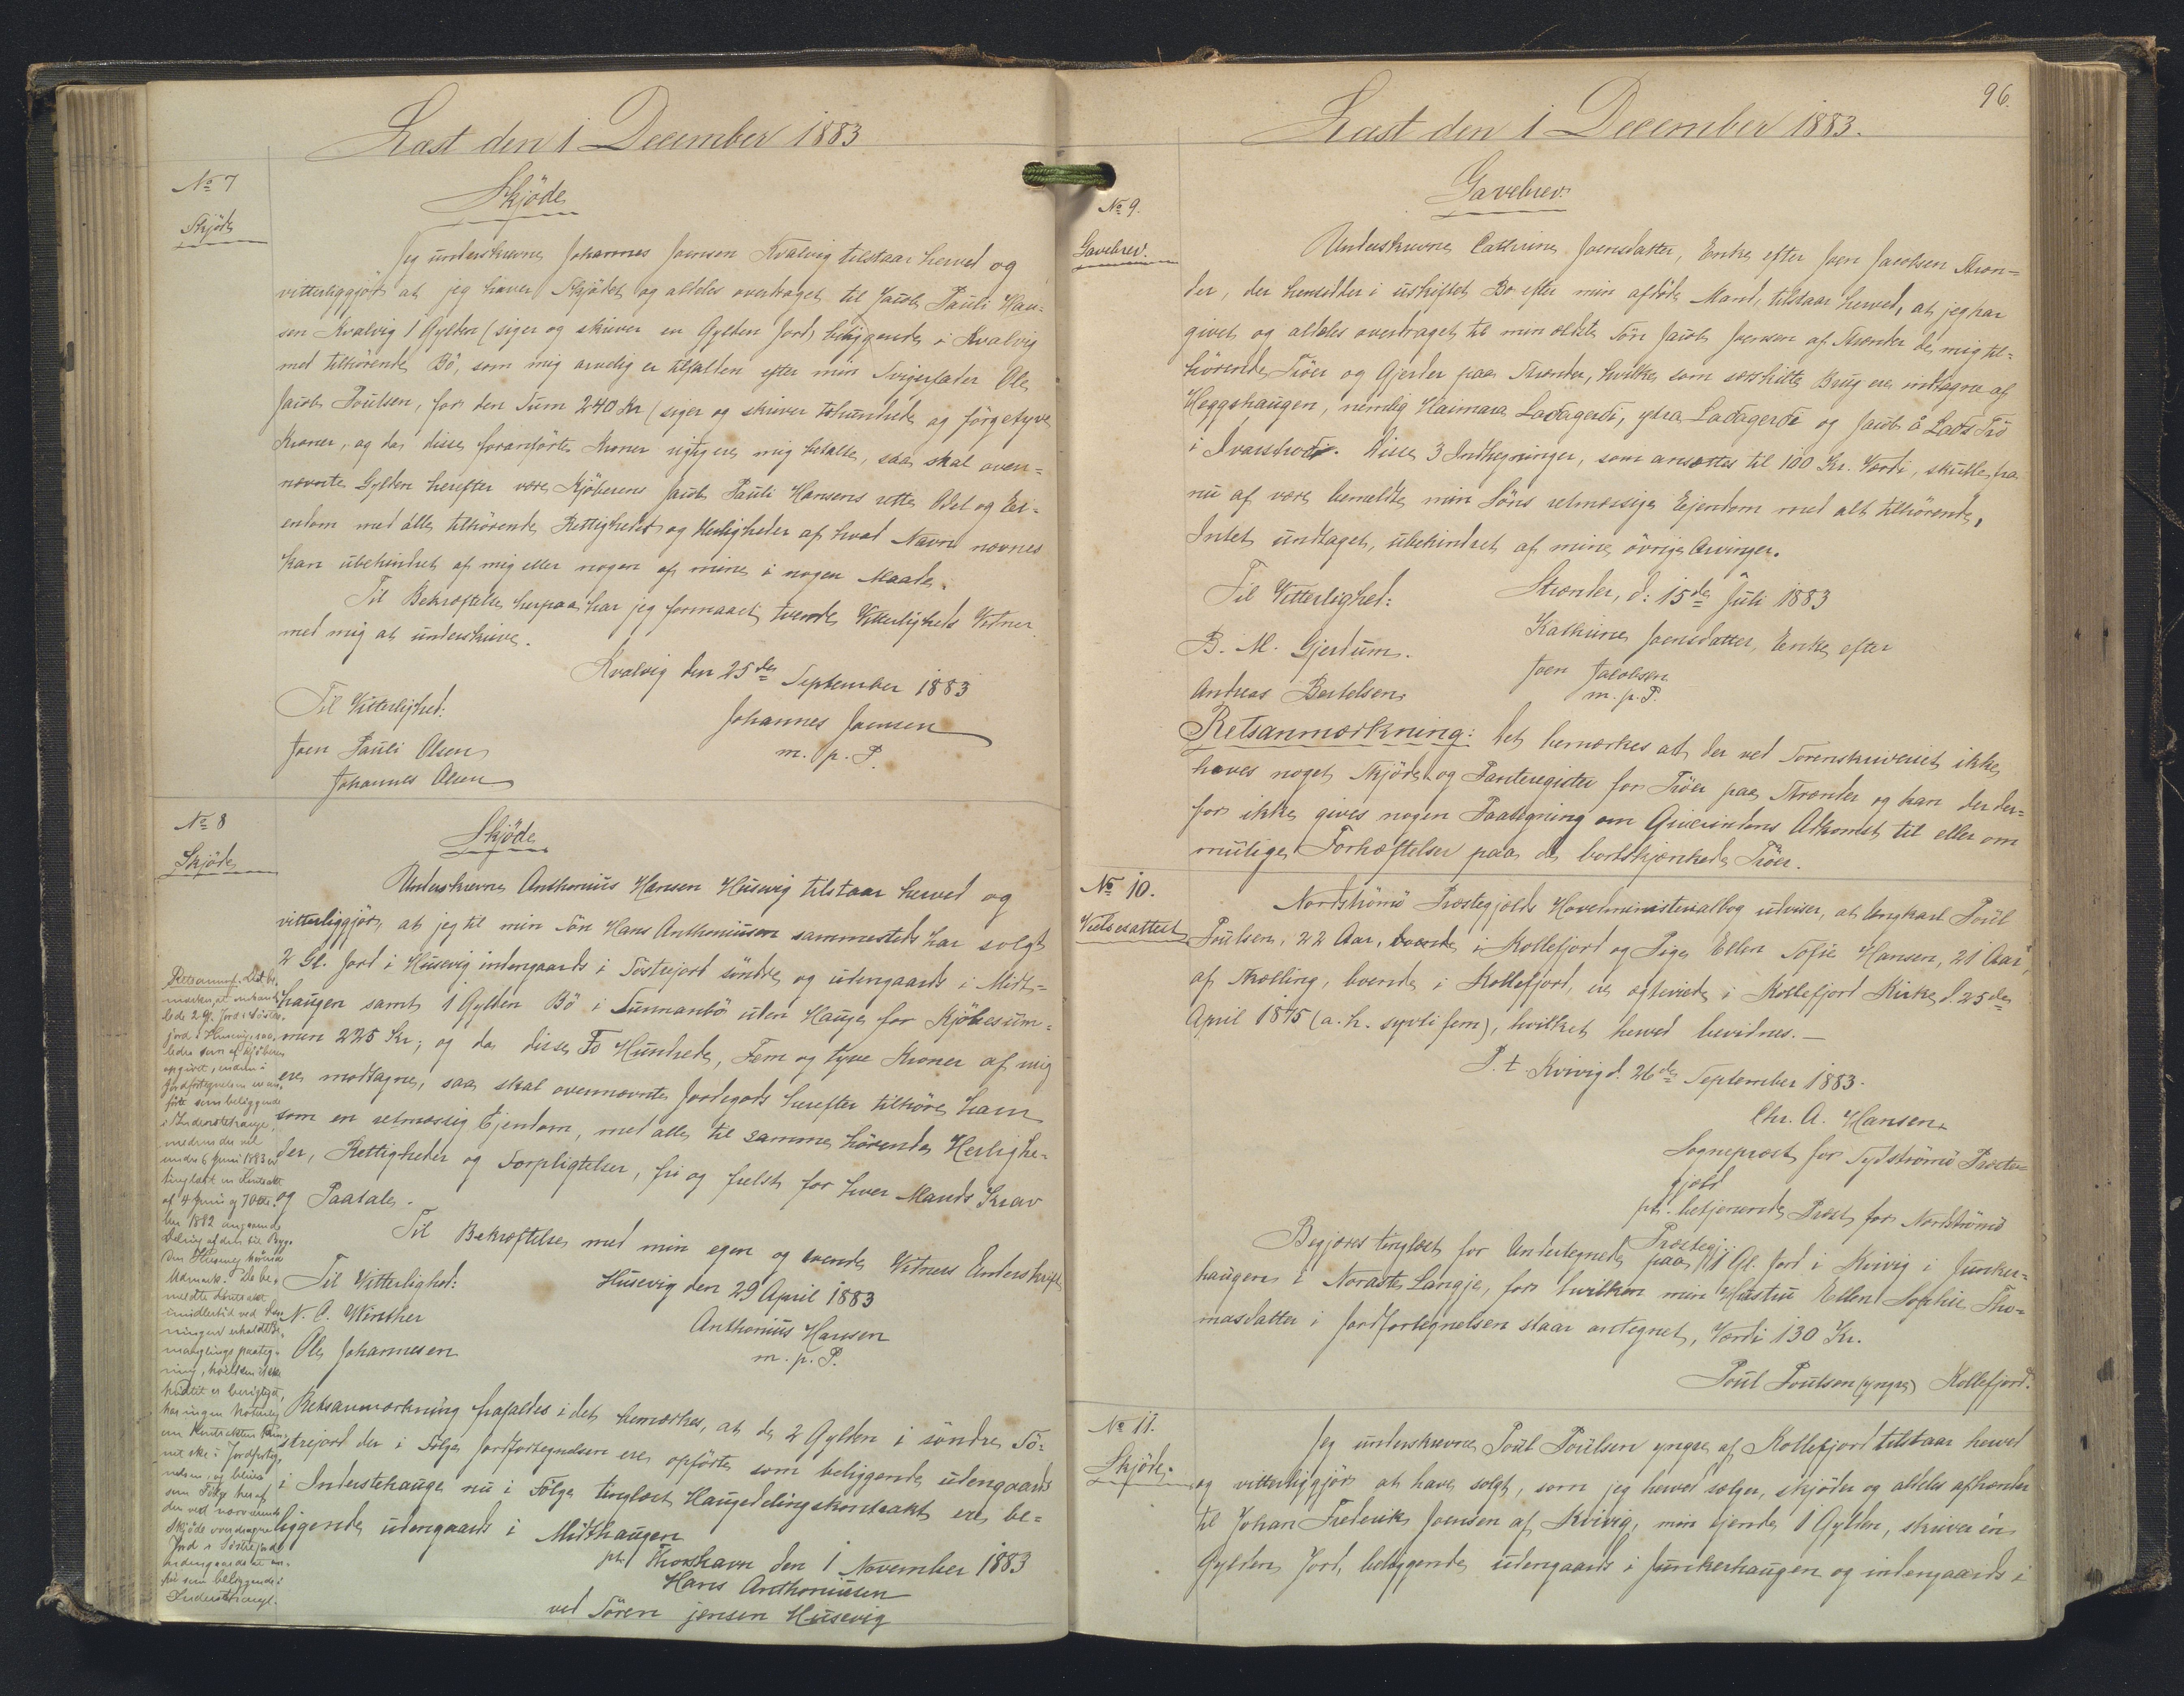 Læst den 1 December 1883
No 7
Skjøde
Skjöde
Jeg underskrevne Johannes Joensen Kvalvig tilstaar herved og
vitterliggjør at jeg haver Skjødet og aldeles overdraget til Jacob Pauli Han=
sen Kvalvig 1 Gylden (siger og skriver en Gylden Jord) beliggende i Kvalvig
med tilhörende Bö, som mig arvelig er tilfalden efter min Svigerfader Ole
Jacob Poulsen, for den Sum 240 Kr (siger og skriver tohundrede og förgetyve
Kroner, og da disse foranförte Kroner rigtig ere mig betalte, saa skal oven=
nævnte Gylden herefter være Kjøberens Jacob Pauli Hansens rette Odel og Ei=
endom med alle tilhörende Rettigheder og Herligheder af hvad Navn nævnes
kan ubehindret af mig eller nogen af mine i nogen Maade.
Til Bekræftelse herpaa har jeg formaaet tvende Vitterligheds Vidner
med mig at underskrive.
Kvalvig den 25de September 1883
Til Vitterlighed:
Johannes Joensen
m. p. P.
Joen Pauli Olsen
Johannes Olsen
No 8
Skjöde
Skjöde
Underskrevne Anthonius Hansen Husevig tilstaar herved og
vitterliggjör, at jeg til min Sön Hans Anthoniussen sammesteds har solgt
2 Gl. Jord i Husevig indengaards i Söstrejord söndre og udengaards i Midt=
haugen samt 1 Gylden Bö i Sunnanbö uden Hauge for Kjöbesum=
men 225 Kr; og da disse To Hundrede, Fem og tyve Kroner af mig
ere modtagne, saa skal ovennævnte Jordegods herefter tilhöre ham
som en retmæssig Ejendom, med alle til samme hörende Herlighe=
der, Rettigheder og Forpligtelser, fri og frelst for hver Mands Krav
og Paatale.
Til Bekræftelse med min egen og tvende Vidners Underskrift
Husevig den 29 April 1883
Til Vitterlighed:
N. C. Winther
Anthonius Hansen
m. p. P.
Ole Johannesen
Retsanmærkning frafaldes idet bemærkes, at de 2 Gylden i söndre Sö=
strejord der i Følge Jordfortegnelsen ere opförte som beliggende udengaards
i Inderstehauge nu i Følge tinglæst Haugedelingskontrakt ere be=
liggende udengaards i Midthaugen
pt. Thorshavn den 1 November 1883
Hans Anthoniussen
ved Sören Jensen Husevig
Retsanm. Det be-
mærkes, at
2 Gl. Jord i Söstre-
jord i Husevig
som af Kjøberen
opgivet, endnu i
Jordfortegnelsen er an-
förte som beliggende
i Inderstehauge,
medens der vel
under 6 Juni 1883 er
tinglæst en Kontrakt
af 4 Juni og
1882 angaaende
Deling af den til Byg-
den Husevig hörende
Udmark.
meldte Kontrakt
imidlertid ved
Be-
manglings paateg-
ning, hvilken ikke
hidtil er berigtiget,
har ingen Notering
om Kontrakten kun-
net ske i Jordforteg-
nelsen, og bliver
som Følge heraf
den ved nærværende
Skjöde overdragne
Jord i Söstrejord
udengaards at an-
före som beliggende i
Inderstehauge.
96.
Læst den 1 December 1883.
No 9.
Gavebrev.
Gavebrev.
Underskrevne Cathrine Joensdatter, Enke efter Joen Jacobsen Stren=
der, der hensidder i uskiftet Bo efter min afdöde Mand, tilstaar herved, at jeg har
givet og aldeles overdraget til min ældste Sön Jacob Joensen af Strender de mig til=
hörende Tröer og Gjerder paa Strender, hvilke som særskilte Brug ere indtagne af
Heggshaugen, nemlig Haimara Ladagerdi, ytra Ladagerdi og Jacob å Lads Trö
i Ivarstrod. Disse 3 Indhegninger, som ansættes til 100 Kr. Værdi, skulle fra
nu af være bemeldte min Söns retmæssige Ejendom med alt tilhörende,
Intet undtaget, ubehindret af mine övrige Arvinger.
Strender, d: 15de Juli 1883
Til Vitterlighed:
Kathrine Joensdatter, Enke efter
B. M. Gjerdum.
Joen Jacobsen
m. p. P.
Andreas Bertelsen
Retsanmærkning: Det bemærkes at der ved Sorenskriveriet ikke
haves noget Skjöde og Panteregister for Tröer paa Strender og kan der der=
for ikke gives nogen Paategning om Giverindens Adkomst til eller om
mulige Forhæftelser paa de bortskjænkede Tröer.
No 10.
Vielsesattest
Nordströmö Præstegjælds Hovedministerialbog udviser, at Ungkarl Poul
Poulsen, 22 Aar, boende i Kollefjord og Pige Ellen Sofie Hansen, 21 Aar,
af Skælling, boende i Kollefjord, ere ægteviede i Kollefjord Kirke d. 25de
April 1875 (a. h. syvti fem), hvilket herved bevidnes.—
P. t. Kvivig d. 26de September 1883.
Chr. A. Hansen.
Sognepræst for Sydströmö Præste=
gjæld
pt. betjenende Præst for Nordströmö
Præstegj.
Begjæres tinglæst for Undertegnede paa 1 Gl. Jord i Kvivig i Junker=
haugen i Norasta Langje, for hvilken min Hustru Ellen Sophie Tho=
masdatter i Jordfortegnelsen staar antegnet, Værdi 130 Kr.
Poul Poulsen (yngre) Kollefjord.
No 11.
Skjöde.
Jeg underskrevne Poul Poulsen yngre af Kollefjord tilstaar herved
og vitterliggjör at have solgt, som jeg herved sælger, skjöder og aldeles afhænder
til Johan Frederik Joensen af Kvivig, min ejende 1 Gylden, skriver én
Gylden Jord, beliggende udengaards i Junkerhaugen og indengaards i